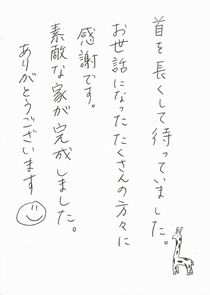 首を長くして待っていました。
お世話になったたくさんの方々に
感謝です。
素敵な家が完成しました。
ありがとうございます